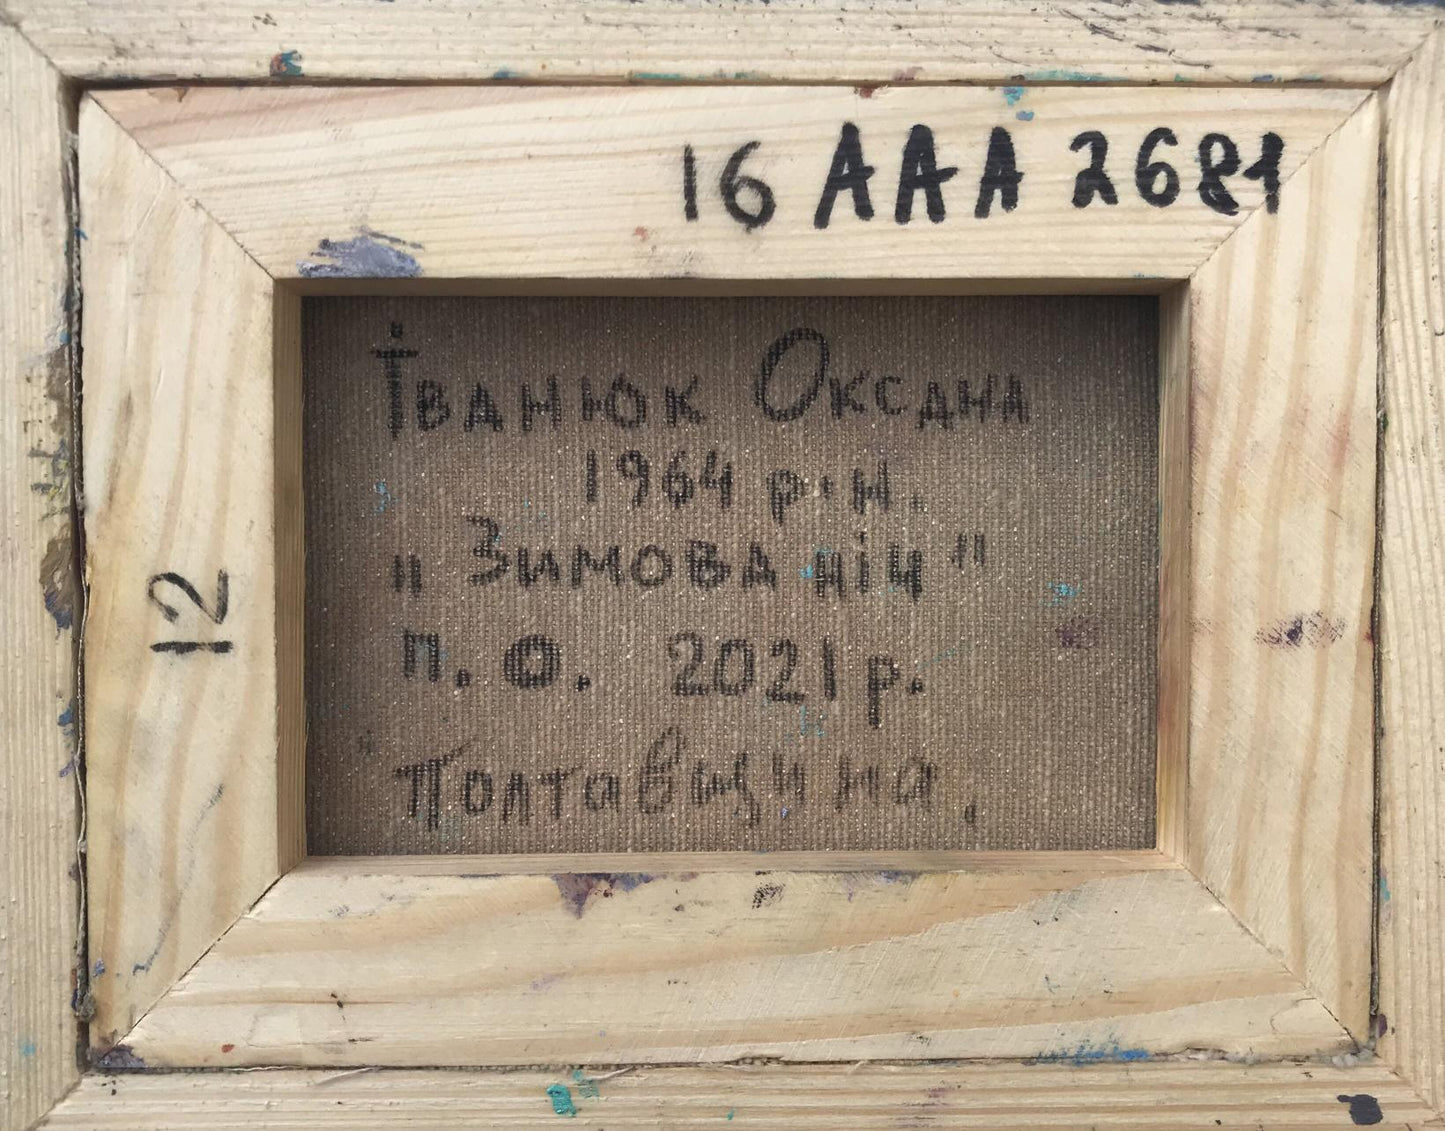 16 AAA 2681
Іванюк Оксана
1964 р.н.
„Зимова ніч"
12
п.о. 2021 р.
Полтавщина.